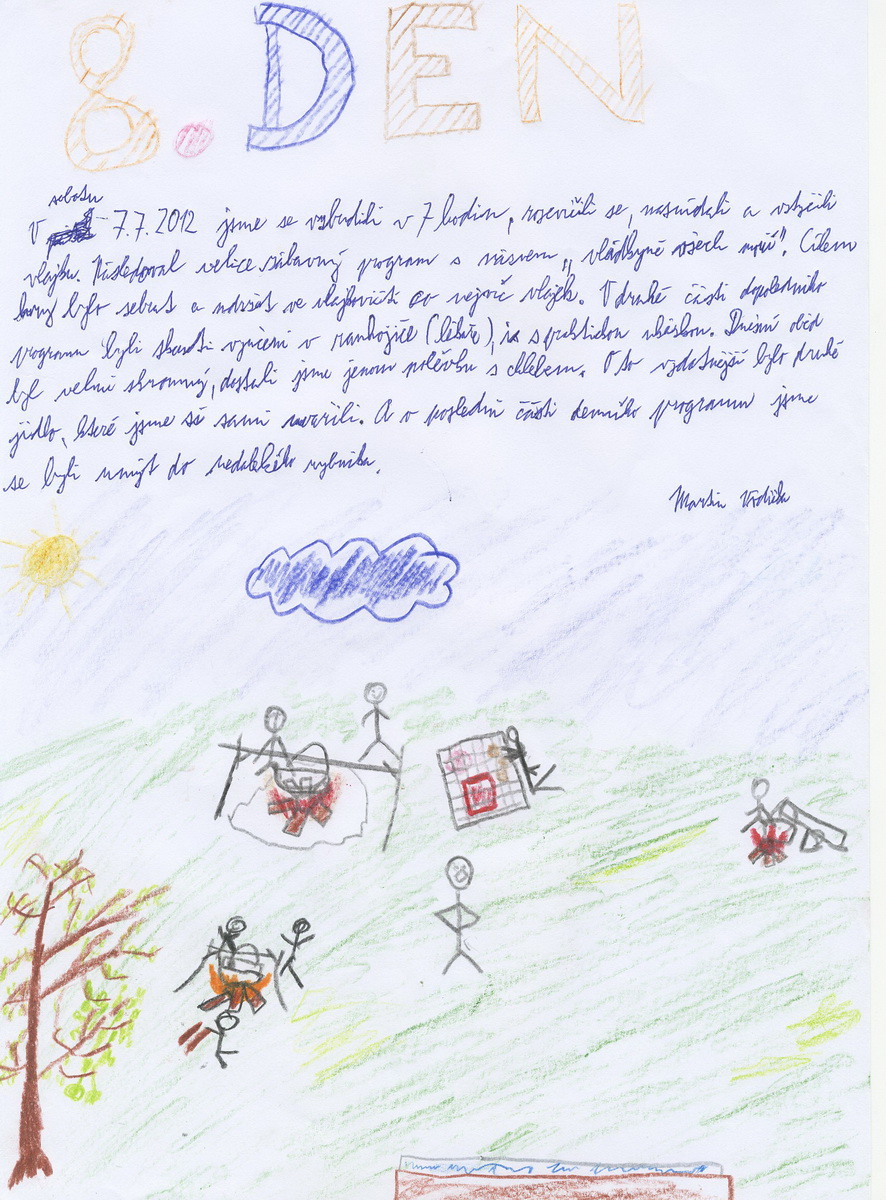 8. DEN
sobotu
V 7.7.2012 jsme se vzbudili v 7 hodin, rozcvičili se, nasnídali a vztyčili
vlajku. Následoval velice zábavný program s názvem „vládkyně všech moří". Cílem
hry bylo sebrat a udržet ve vlajkovišti co nejvíc vlajek. V druhé části dopoledního
programu byli skauti vyučeni v ranhojiče (lékaře), s praktickou ukázkou. Dnešní oběd
byl velmi skromný, dostali jsme jenom polévku s chlebem. O to vydatnější bylo druhé
jídlo, které jsme si sami uvařili. A v poslední části denního programu jsme
se byli umýt do nedalekého rybníka.
Martin